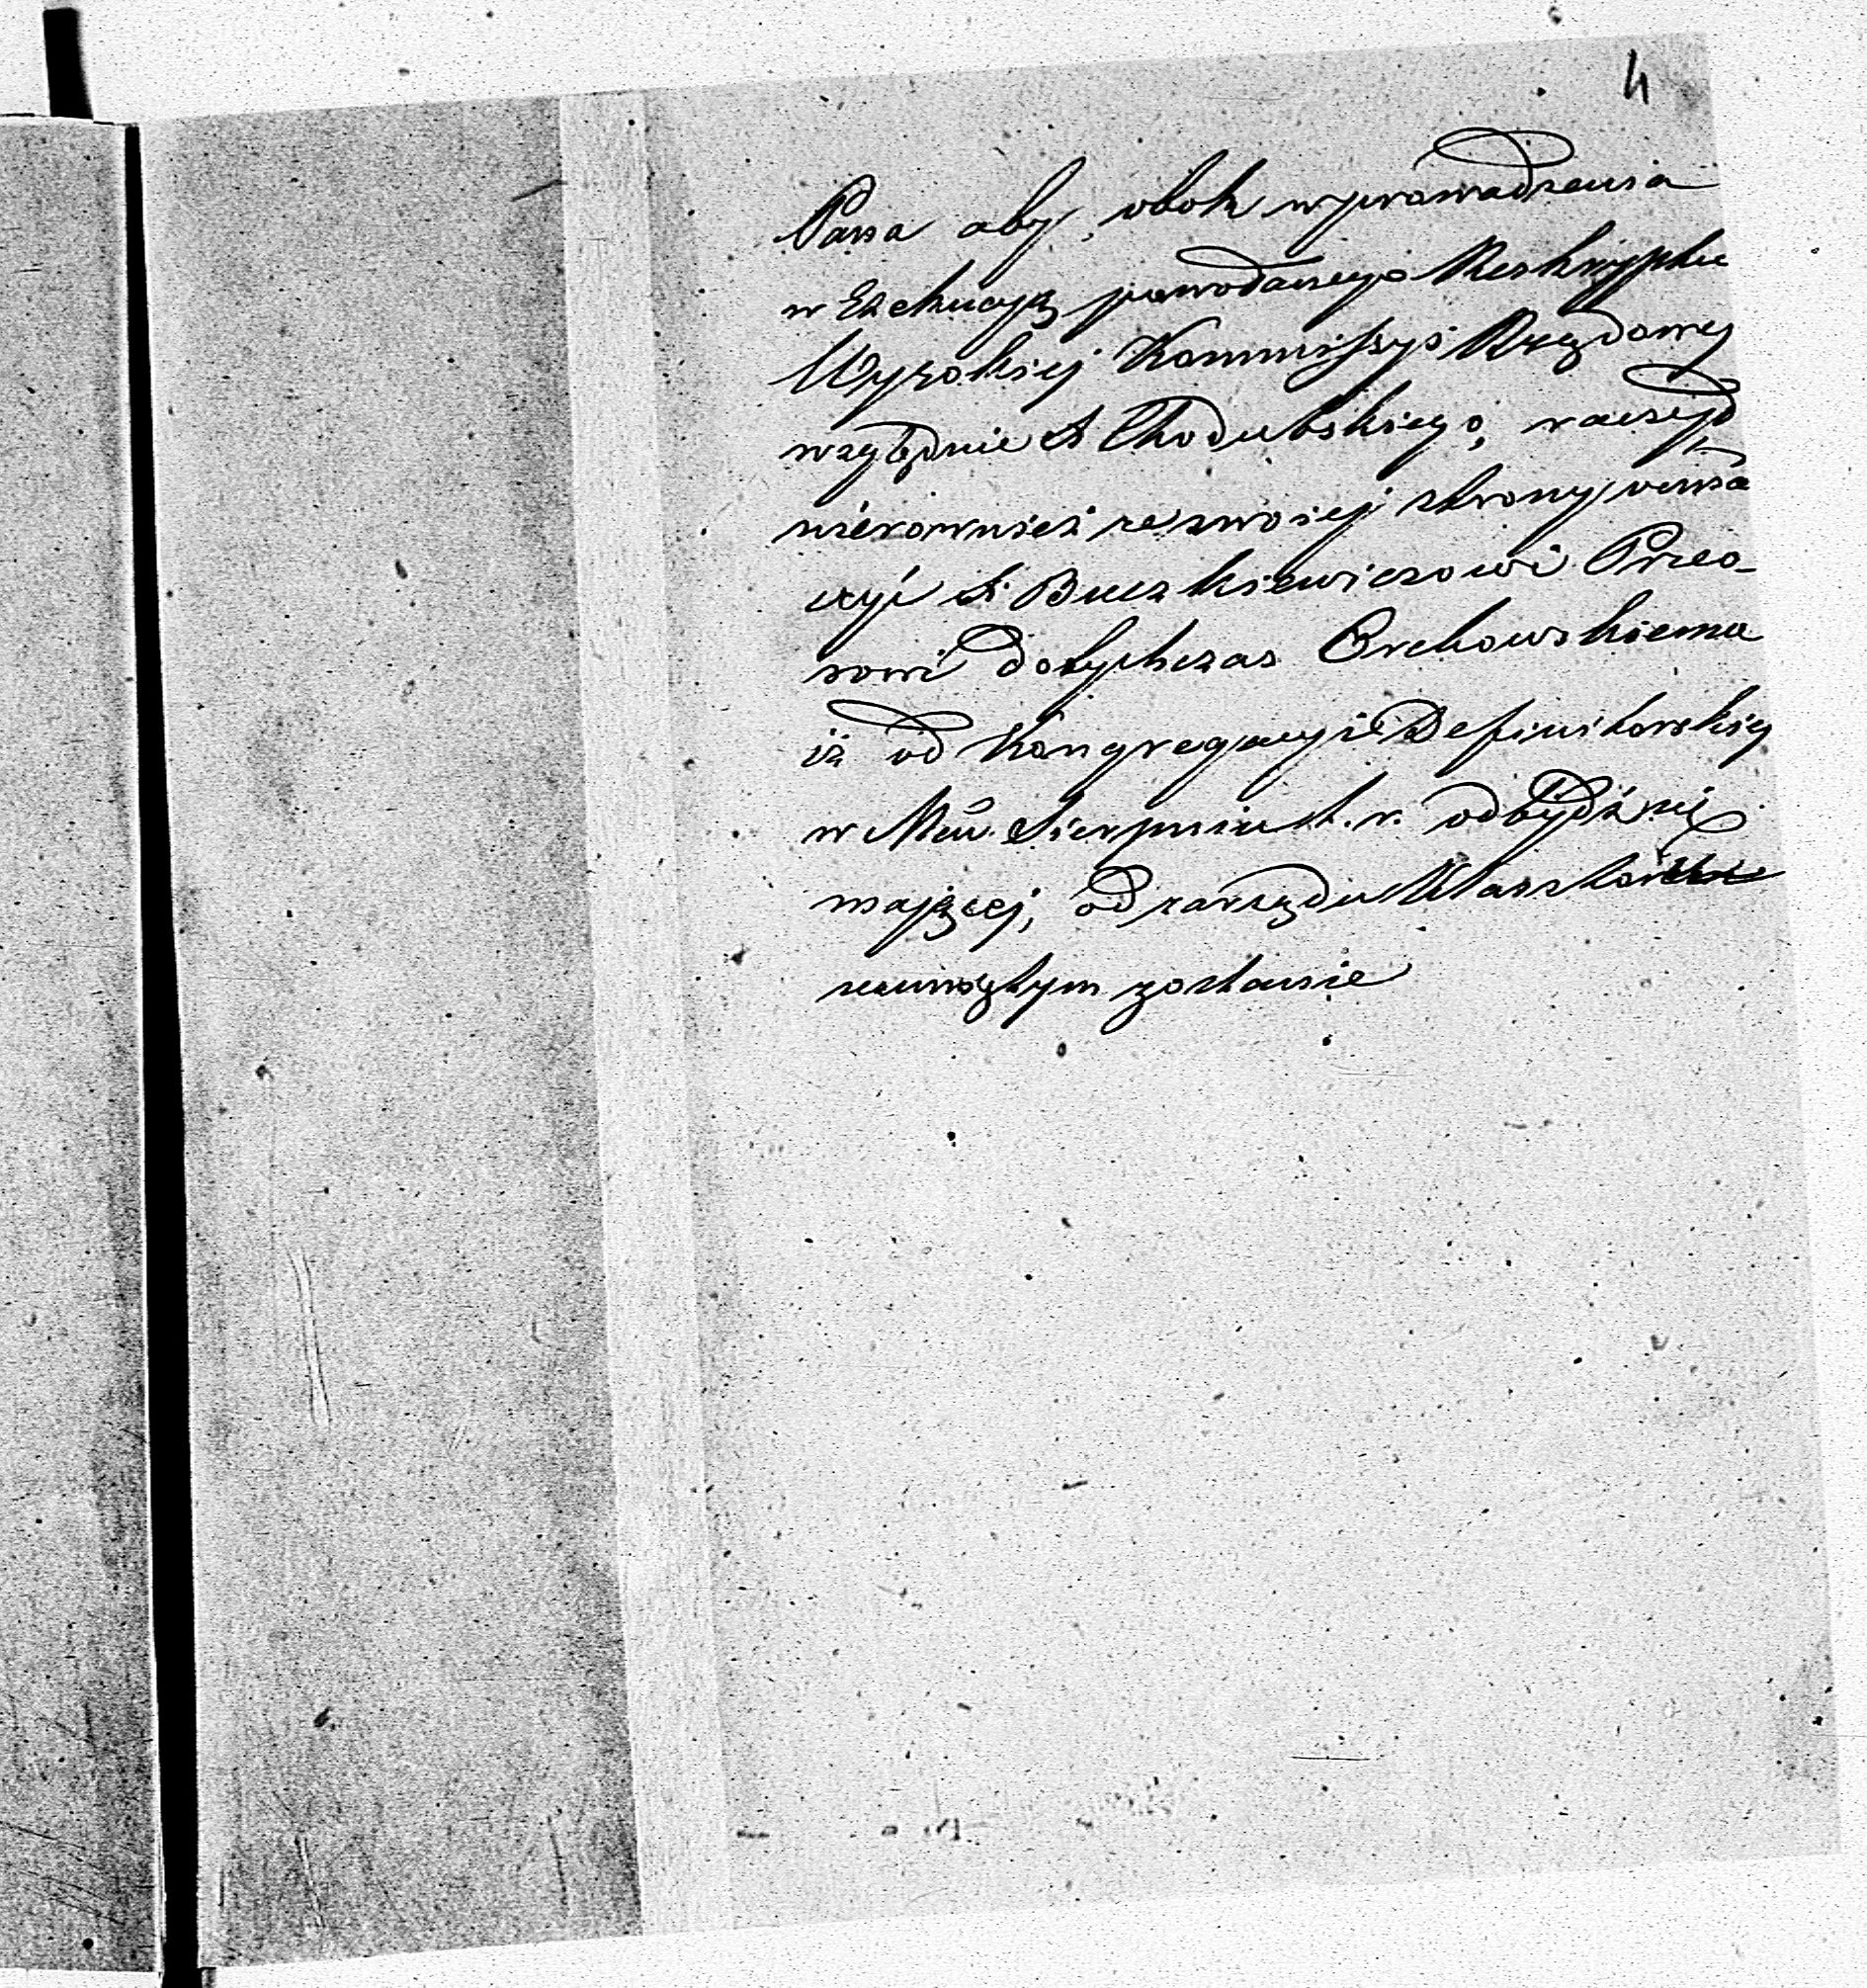 4
Pana aby, obok wyprowadzenia
w Exekucyą powołanego Reskryptu
Wysokiej Kommissyi Rządowej
względnie X Chodubskiego, raczył
nierównież ze swojej strony
X Buczkiewiczowi Przeo-
rowi dotychczas Orchowskiemu
iż od Kongregacyi Definitorskiej
w Mcu Sierpniu t. r. odbydź się
mającej, od zarządu Klasztoru
usuniętym zostanie